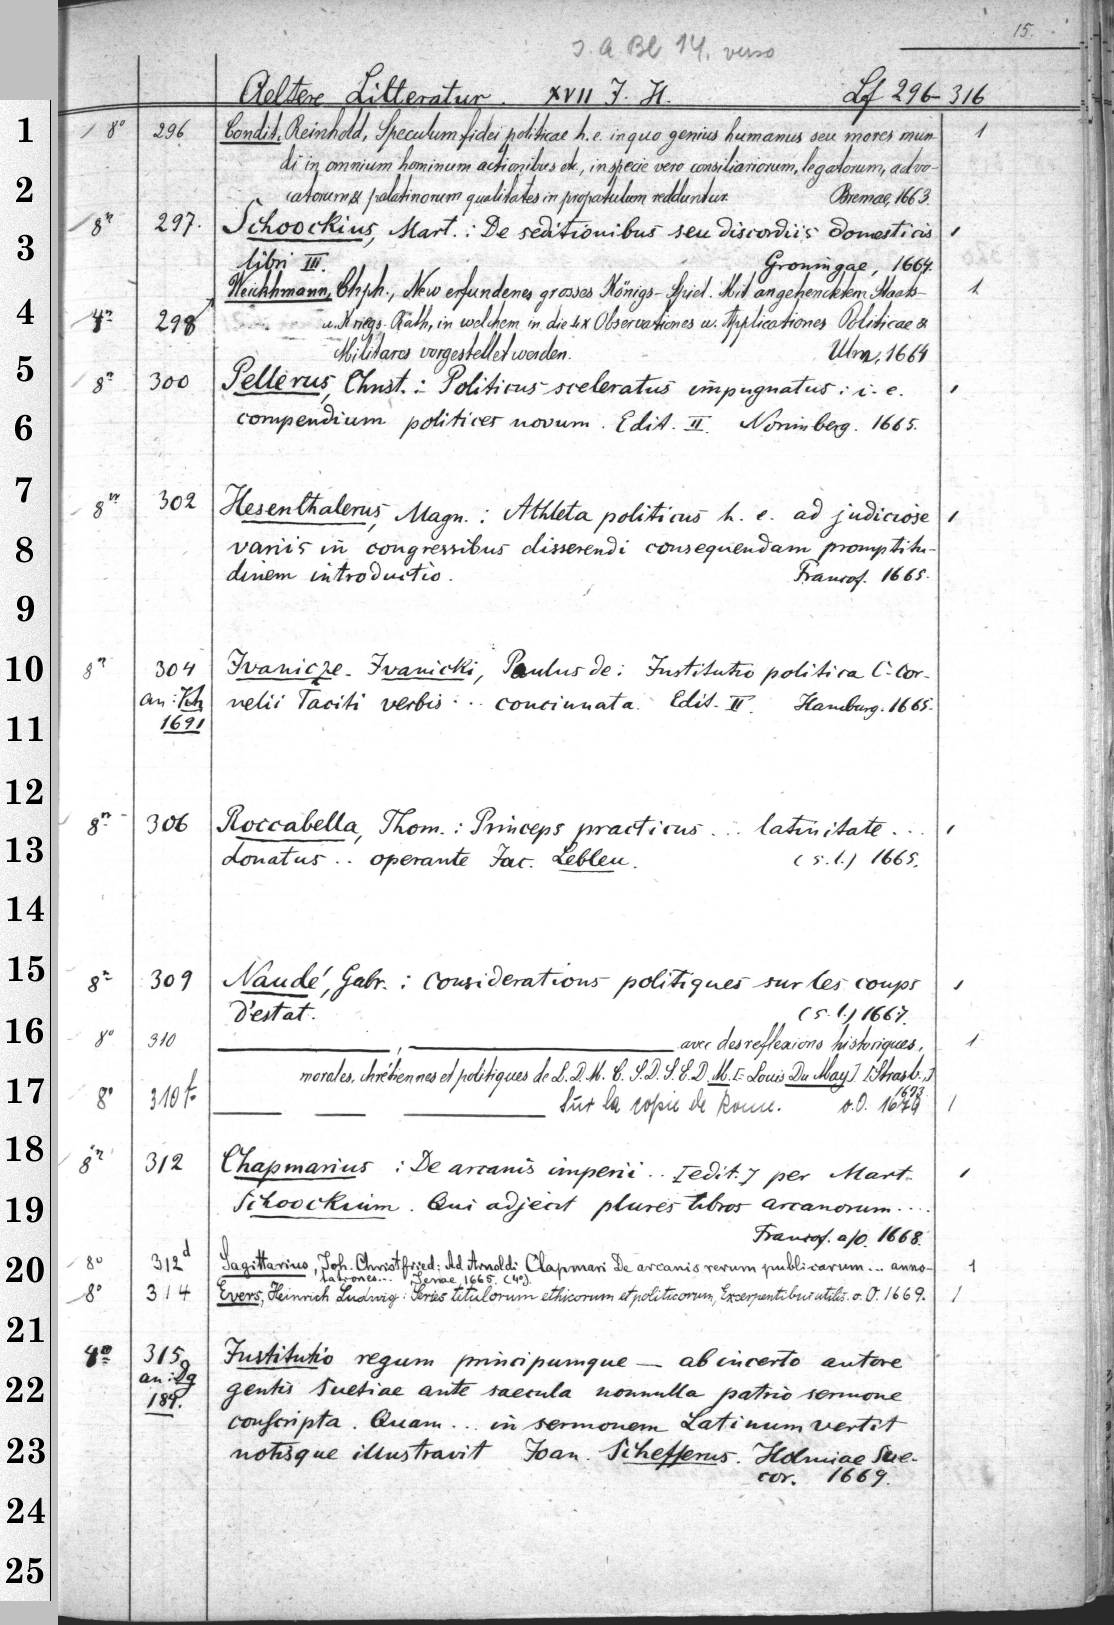 15.
s. a Bl 14. verso
Aeltere Litteratur. XVII J. H. Lf 296-316
8° 296 Condit, Reinhold, Speculum fidei politicae h. e. in quo genius humanus seu mores mun-
di in omnium hominum actionibus etc., in specie vero consiliariorum, legatorum, advo-
catorum & palatinorum qualitates in propatulum redduntur. Bremae, 1663. 1
8° 297. Schoockius, Mart.: De seditionibus seu discordiis domesticis
libri III. Groningae, 1664. 1
Weickhmann, Chph., New erfundenes grosses Königs-Spiel. Mit angehencktem Staats- 1
4° 298 u. Kriegs-Rath, in welchem in die 60 Observationes u. Applicationes Politicae &
Militares vorgestellet werden. Ulm, 1664
8° 300 Pellerus, Christ.: Politicus sceleratus impugnatus: i. e. 1
compendium politices novum. Edit. II. Norimberg. 1665.
8vo 302 Hesenthalerus, Magn.: Athleta politicus h. e. ad judiciose 1
variis in congressibus disserendi consequendam promptitu-
dinem introductio. Francof. 1665.
8° 304 Ivanicze-Ivanicki, Paulus de: Institutio politica C. Cor-
an: nelii Taciti verbis... concinnata. Edit. II. Hamburg. 1665.
1691
8° 306 Roccabella, Thom.: Princeps practicus... latinitate... 1
donatus.. operante Jac. Lebleu. (s. l.) 1665.
8° 309 Naudé, Gabr.: Considerations politiques sur les coups 1
d'estat. (s. l.) 1667.
8° 310 ———, ——— avec des reflexions historiques, 1
morales, chrétiennes et politiques de L. D. M. C. S. D. S. E. D. M. [= Louis Du May]. [Strasb.,]
1673
8° 310 ——— ——— ——— Sur la copie de Rome. o. O. 1679 1
8° 312 Chapmarius: De arcanis imperii.. [edit.] per Mart. 1
Schoockium. Qui adjecit plures libros arcanorum....
Francof. a/O. 1668.
8° 312d Sagittarius, Joh. Christfried: Ad Arnoldi Clapmari De arcanis rerum publicarum... anno- 1
tationes... Jenae, 1665. (4°).
8° 314 Evers, Heinrich Ludwig: Series titulorum ethicorum et politicorum, Excerpentibus utilis. o. O. 1669. 1
4° 315 Institutio regum principumque — ab incerto autore
an: gentis Suetiae ante saecula nonnulla patrio sermone
189. conscripta. Quam... in sermonem Latinum vertit
notisque illustravit Joan. Schefferus. Holmiae Sue-
cor. 1669.
1
2
3
4
5
6
7
8
9
10
11
12
13
14
15
16
17
18
19
20
21
22
23
24
25